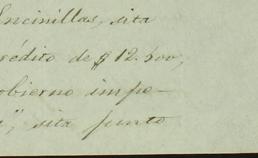 Encinillas, sita
crédito de $12.500,
obierno impe-
", sita junto